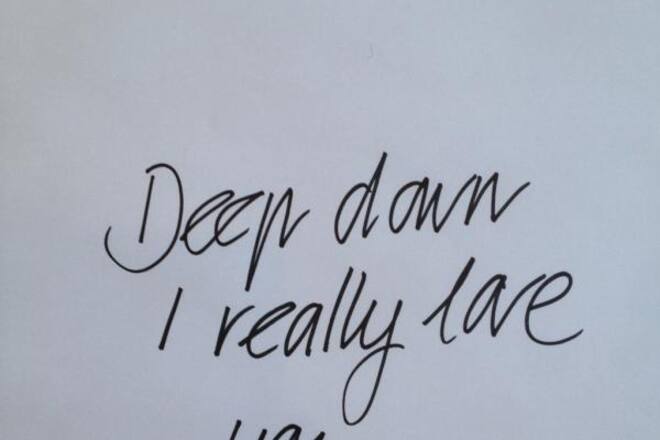 Deep down
I really love